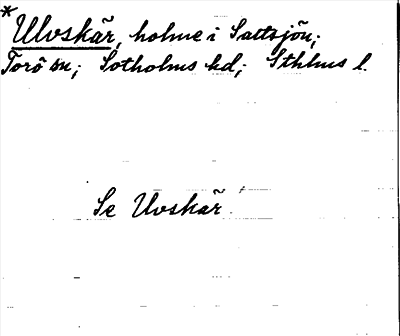 *Ulvskär, holme i Saltsjön;
Torö sn; Sotholms hd; Sthlms l.
Se Uvskär.